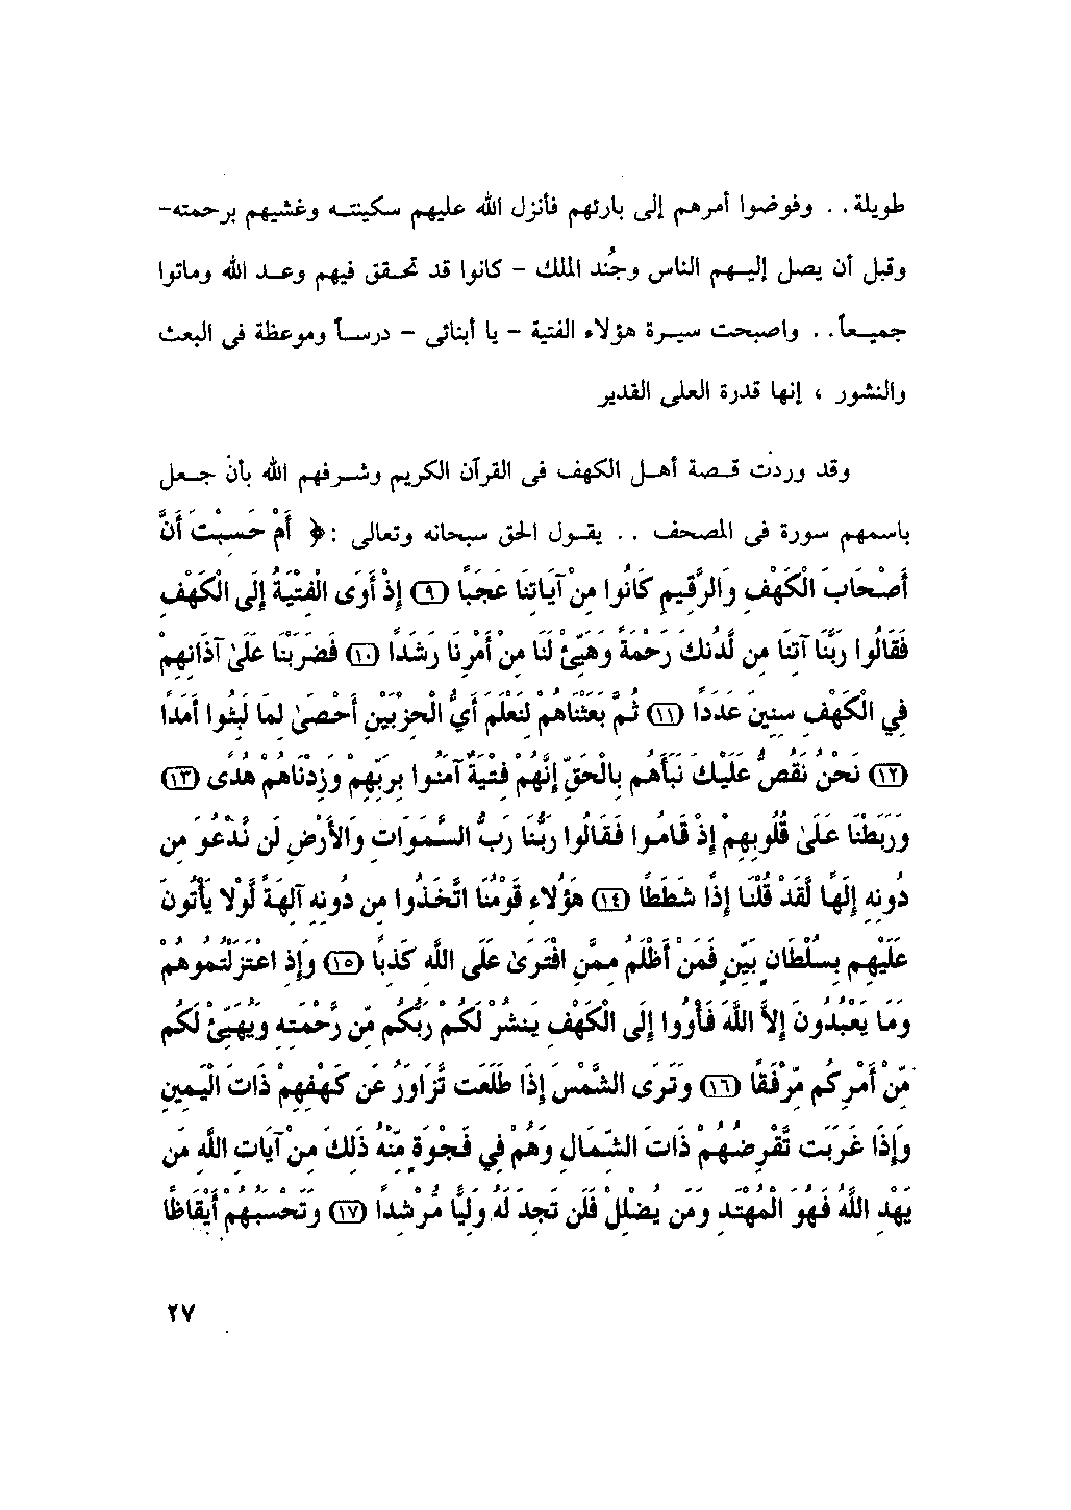 طويلة . . وفوضوا أمرهم إلى بارئهم فأنزل الله عليهم سكينته وغشيهم برحمته-
وقبل أن يصل إليهم الناس وجُند الملك - كانوا قد تحقق فيهم وعد الله وماتوا
جميعاً . . واصبحت سيرة هؤلاء الفتية - يا أبنائى - درساً وموعظة فى البعث
والنشور ، إنها قدرة العلى القدير
وقد وردت قصة أهل الكهف فى القرآن الكريم وشرفهم الله بأن جعل
باسمهم سورة فى المصحف . . يقول الحق سبحانه وتعالى : ﴿ أَمْ حَسِبْتَ أَنَّ
أَصْحَابَ الْكَهْفِ وَالرَّقِيمِ كَانُوا مِنْ آيَاتِنَا عَجَبًا (٩) إِذْ أَوَى الْفِتْيَةُ إِلَى الْكَهْفِ
فَقَالُوا رَبَّنَا آتِنَا مِن لَّدُنكَ رَحْمَةً وَهَيِّئْ لَنَا مِنْ أَمْرِنَا رَشَدًا (١٠) فَضَرَبْنَا عَلَىٰ آذَانِهِمْ
فِي الْكَهْفِ سِنِينَ عَدَدًا (١١) ثُمَّ بَعَثْنَاهُمْ لِنَعْلَمَ أَيُّ الْحِزْبَيْنِ أَحْصَىٰ لِمَا لَبِثُوا أَمَدًا
(١٢) نَحْنُ نَقُصُّ عَلَيْكَ نَبَأَهُم بِالْحَقِّ إِنَّهُمْ فِتْيَةٌ آمَنُوا بِرَبِّهِمْ وَزِدْنَاهُمْ هُدًى (١٣)
وَرَبَطْنَا عَلَىٰ قُلُوبِهِمْ إِذْ قَامُوا فَقَالُوا رَبُّنَا رَبُّ السَّمَوَاتِ وَالأَرْضِ لَن نَّدْعُوَ مِن
دُونِهِ إِلَهًا لَّقَدْ قُلْنَا إِذًا شَطَطًا (١٤) هَؤُلاءِ قَوْمُنَا اتَّخَذُوا مِن دُونِهِ آلِهَةً لَّوْلا يَأْتُونَ
عَلَيْهِم بِسُلْطَانٍ بَيِّنٍ فَمَنْ أَظْلَمُ مِمَّنِ افْتَرَىٰ عَلَى اللَّهِ كَذِبًا (١٥) وَإِذِ اعْتَزَلْتُمُوهُمْ
وَمَا يَعْبُدُونَ إِلاَّ اللَّهَ فَأْوُوا إِلَى الْكَهْفِ يَنشُرْ لَكُمْ رَبُّكُم مِّن رَّحْمَتِهِ وَيُهَيِّئْ لَكُم
مِّنْ أَمْرِكُم مِّرْفَقًا (١٦) وَتَرَى الشَّمْسَ إِذَا طَلَعَت تَّزَاوَرُ عَن كَهْفِهِمْ ذَاتَ الْيَمِينِ
وَإِذَا غَرَبَت تَّقْرِضُهُمْ ذَاتَ الشِّمَالِ وَهُمْ فِي فَجْوَةٍ مِّنْهُ ذَلِكَ مِنْ آيَاتِ اللَّهِ مَن
يَهْدِ اللَّهُ فَهُوَ الْمُهْتَدِ وَمَن يُضْلِلْ فَلَن تَجِدَ لَهُ وَلِيًّا مُّرْشِدًا (١٧) وَتَحْسَبُهُمْ أَيْقَاظًا
٢٧